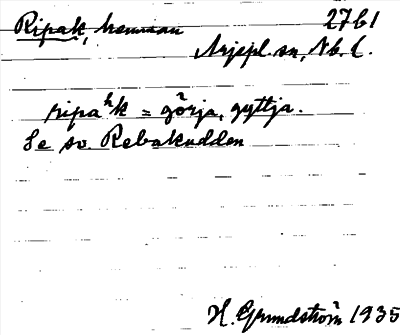 Ripak, hemman 2761
Arjepl. sn, Nb. l.
ripaʰk = görja, gyttja.
Se sv. Rebakudden
H. Grundström 1935